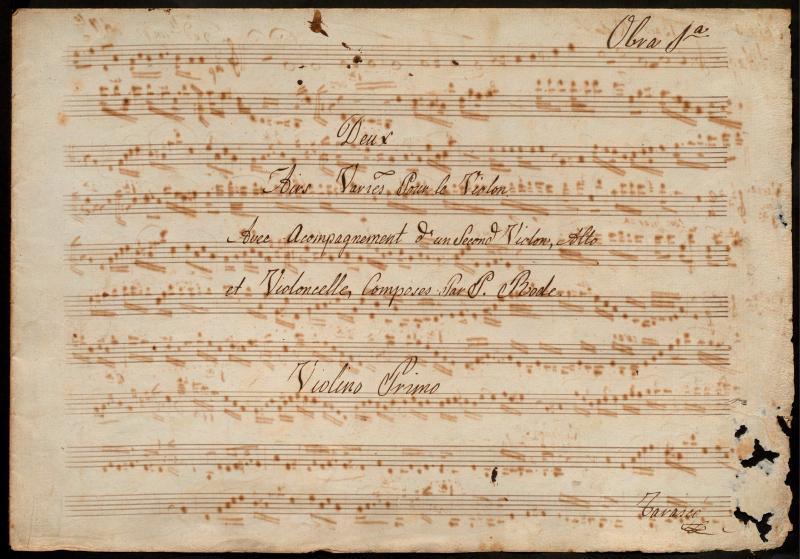 Obra 1ª
Deux
Airs Variés Pour le Violon
Avec Acompagnement d'un Second Violon, Alto
et Violoncelle, Composés Par P. Rode
Violino Primo